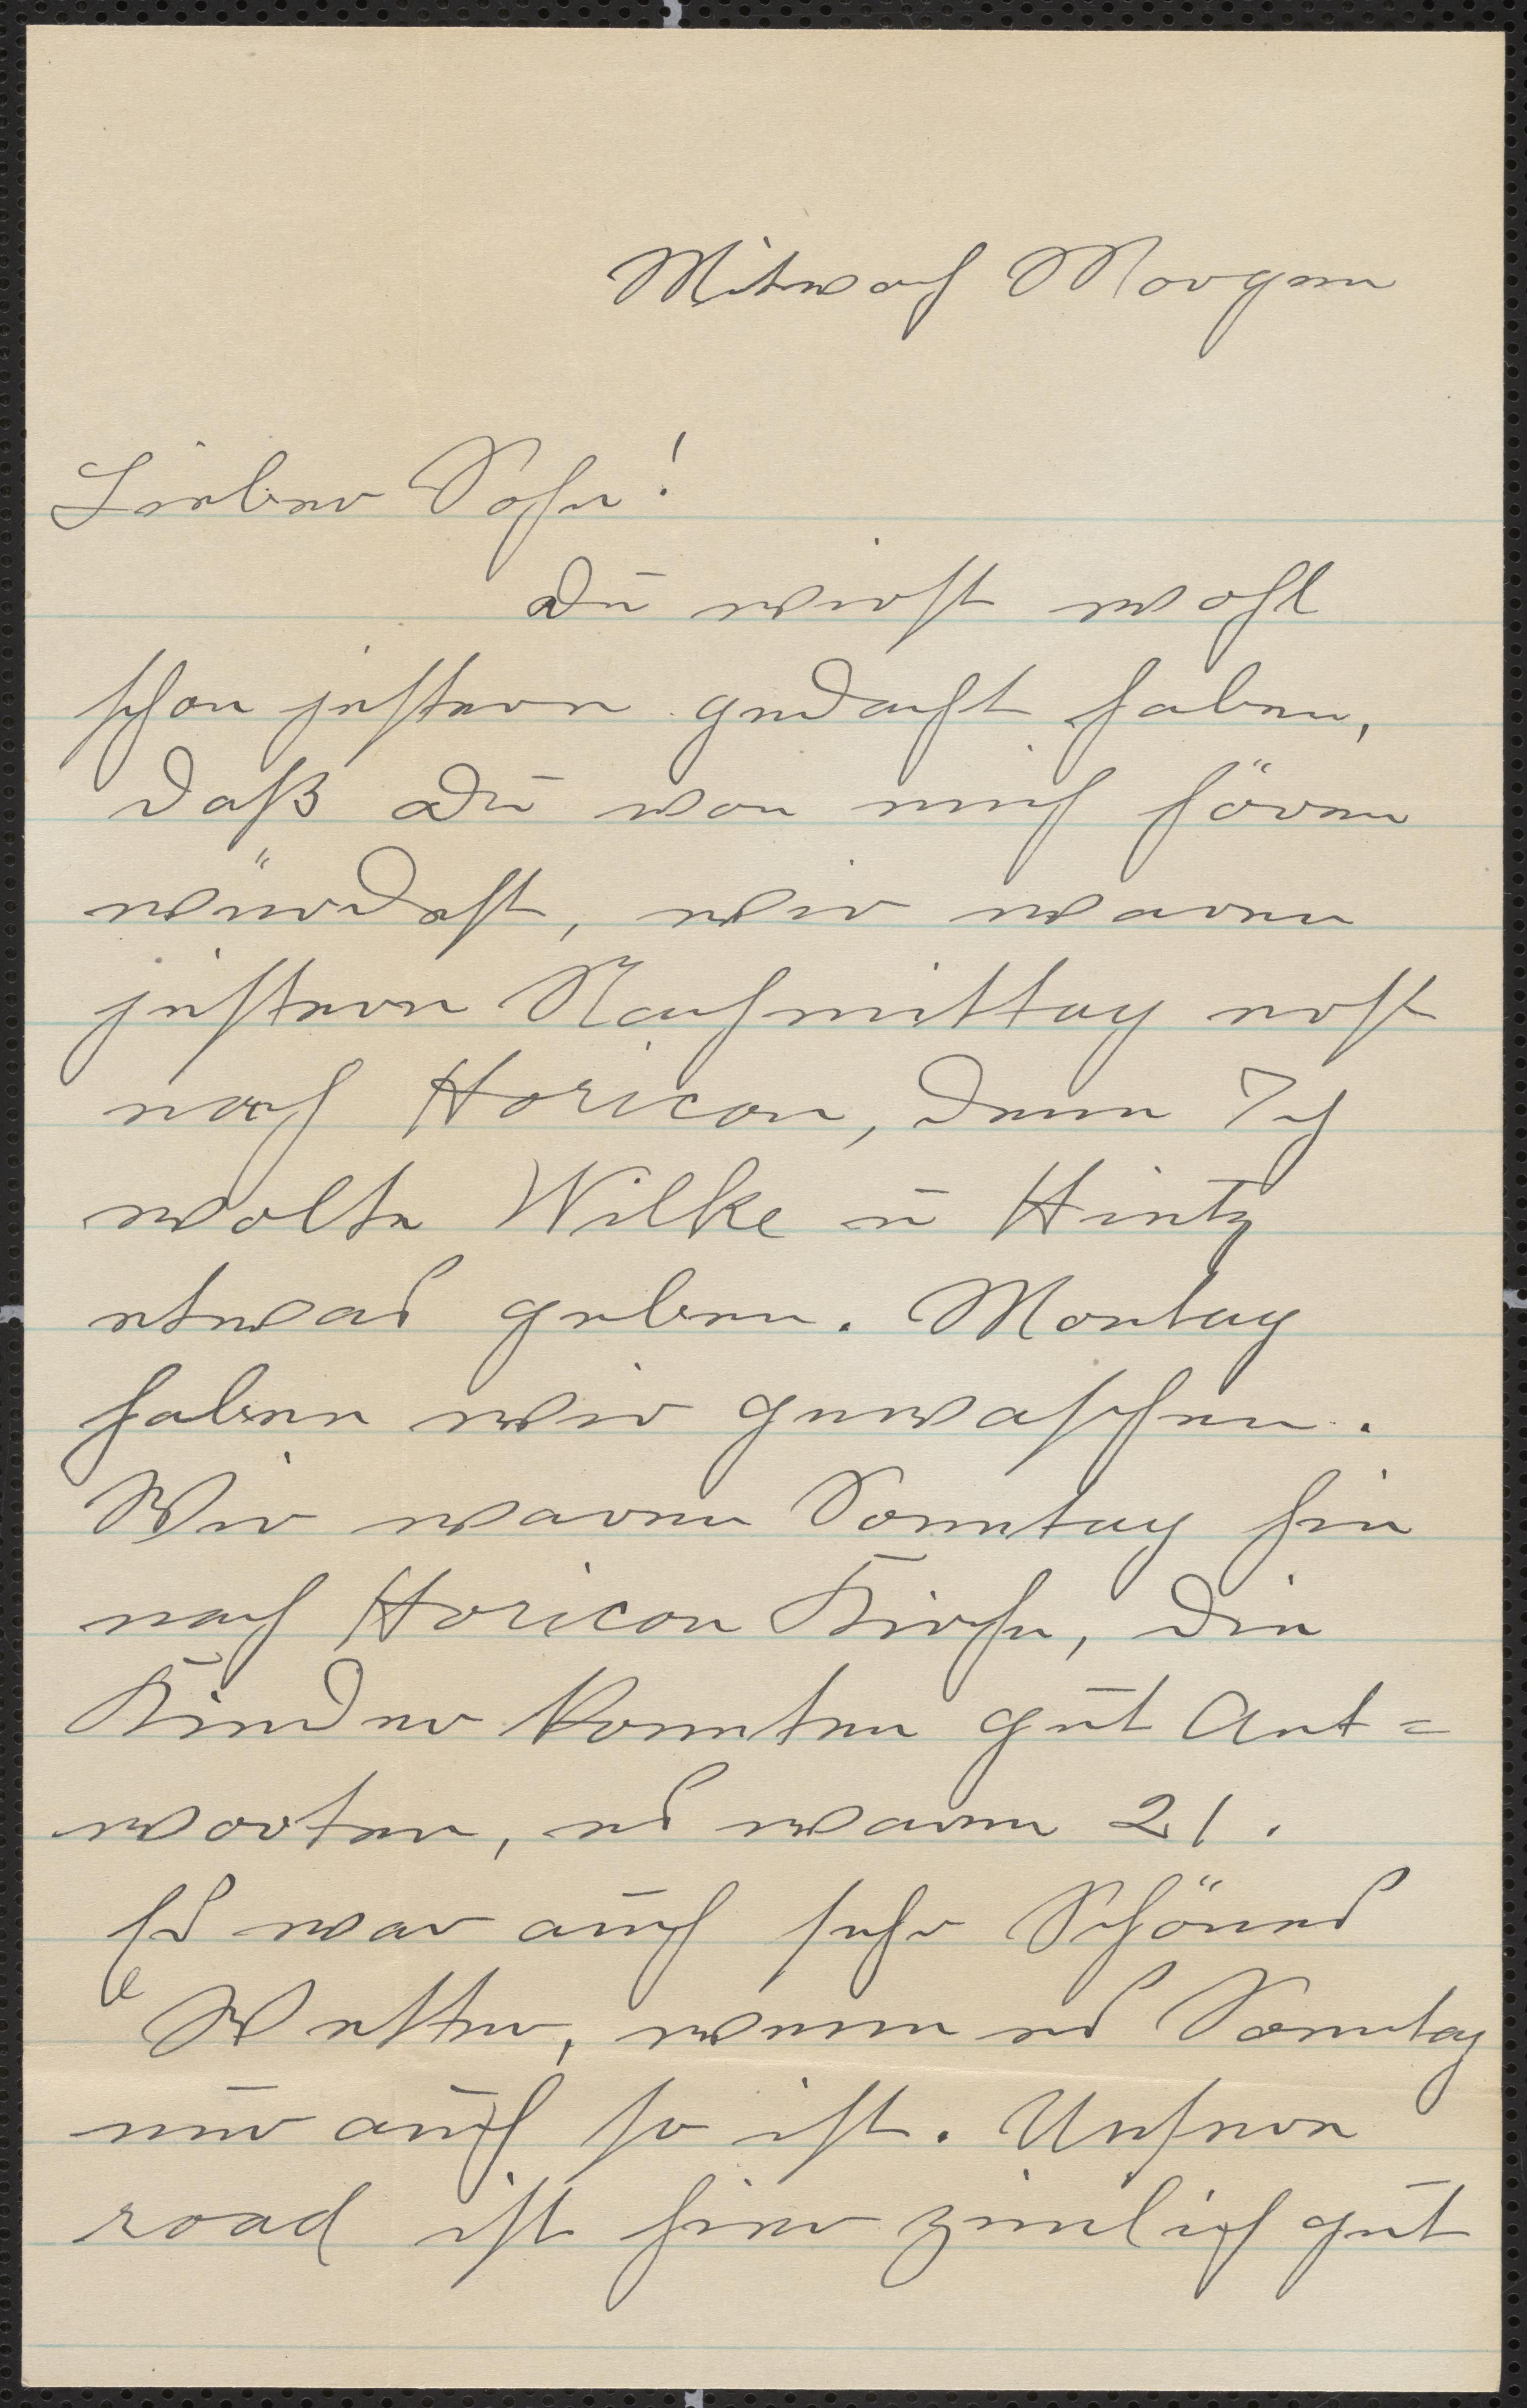 Mitwoch Morgen
Lieber Sohn!
Du wirst wohl
schon jestern gedacht haben,
daß Du von mich hören
würdest, wir waren
jestern Nachmittag erst
nach Horicon, denn Ich
wolte Wilke u Hintz
etwas geben. Montag
haben wir gewaschen.
Wir waren Sonntag hin
nach Horicon Kirche, die
Kinder konnten gut Ant=
worten, es waren 21.
Es war auch sehr Schönes
Wetter, wenn es Sonntag
nur auch so ist. Unsere
road ist hier zimlich gut